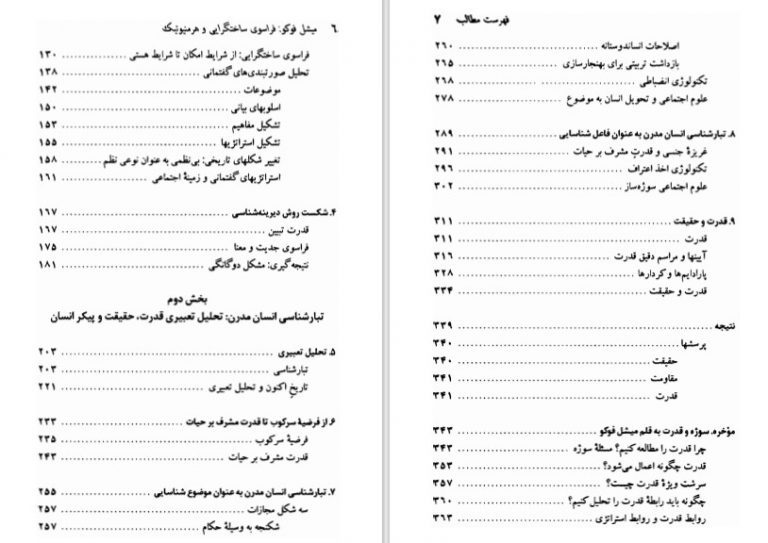 ۶ میشل فوکو: فراسوی ساختگرایی و هرمنیوتیک
فراسوی ساختگرایی: از شرایط امکان تا شرایط هستی ۱۳۰
تحلیل صورتبندی‌های گفتمانی ۱۳۸
موضوعات ۱۴۲
اسلوبهای بیانی ۱۵۰
تشکیل مفاهیم ۱۵۳
تشکیل استراتژیها ۱۵۵
تغییر شکلهای تاریخی: بی‌نظمی به عنوان نوعی نظم ۱۵۸
استراتژیهای گفتمانی و زمینهٔ اجتماعی ۱۶۱
۴. شکست روش دیرینه‌شناسی ۱۶۷
قدرت تبیین ۱۶۷
فراسوی جدیت و معنا ۱۷۵
نتیجه‌گیری: مشکل دوگانگی ۱۸۱
بخش دوم
تبارشناسی انسان مدرن: تحلیل تعبیری قدرت، حقیقت و پیکر انسان
۵. تحلیل تعبیری ۲۰۳
تبارشناسی ۲۰۳
تاریخ اکنون و تحلیل تعبیری ۲۲۱
۶. از فرضیهٔ سرکوب تا قدرت مشرف بر حیات ۲۳۳
فرضیهٔ سرکوب ۲۳۵
قدرت مشرف بر حیات ۲۴۳
۷. تبارشناسی انسان مدرن به عنوان موضوع شناسایی ۲۵۵
سه شکل مجازات ۲۵۷
شکنجه به وسیلهٔ حکام ۲۵۷
فهرست مطالب ۷
اصلاحات انساندوستانه ۲۶۰
بازداشت تربیتی برای بهنجارسازی ۲۶۵
تکنولوژی انضباطی ۲۶۸
علوم اجتماعی و تحویل انسان به موضوع ۲۷۸
۸. تبارشناسی انسان مدرن به عنوان فاعل شناسایی ۲۸۹
غریزهٔ جنسی و قدرت مشرف بر حیات ۲۹۱
تکنولوژی اخذ اعتراف ۲۹۶
علوم اجتماعی سوژه‌ساز ۳۰۲
۹. قدرت و حقیقت ۳۱۱
قدرت ۳۱۱
آیینها و مراسم دقیق قدرت ۳۱۶
پارادایم‌ها و کردارها ۳۲۸
قدرت و حقیقت ۳۳۴
نتیجه ۳۳۹
پرسشها ۳۴۰
حقیقت ۳۴۰
مقاومت ۳۴۱
قدرت ۳۴۱
مؤخره. سوژه و قدرت به قلم میشل فوکو ۳۴۳
چرا قدرت را مطالعه کنیم؟ مسئلهٔ سوژه ۳۴۳
قدرت چگونه اعمال می‌شود؟ ۳۵۳
سرشت ویژهٔ قدرت چیست؟ ۳۵۷
چگونه باید رابطهٔ قدرت را تحلیل کنیم؟ ۳۶۰
روابط قدرت و روابط استراتژی ۳۶۳